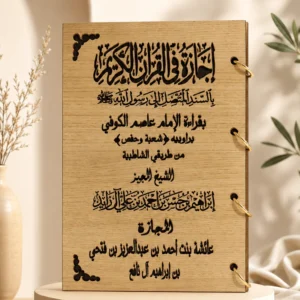 إجازة في القرآن الكريم
بالسند المتصل إلى رسول الله ﷺ
بقراءة الإمام عاصم الكوفي
براوييه ﴿شعبة وحفص﴾
من طريقي الشاطبية
الشيخ المجيز
إبراهيم بن حسن بن أحمد بن علي آل زائد
المجازة
عائشة بنت أحمد بن عبدالعزيز بن فتحي
بن إبراهيم آل نافع